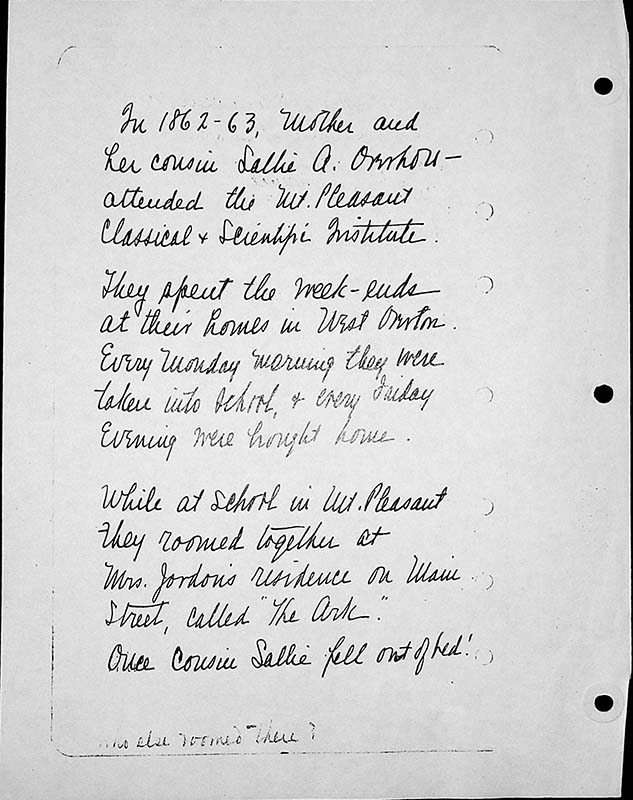 In 1862-63, Mother and
her cousin Sallie A. Overholt
attended the Mt. Pleasant
Classical & Scientific Institute.
They spent the week-ends
at their homes in West Overton.
Every Monday morning they were
taken into school, & every Friday
Evening were brought home.
While at School in Mt. Pleasant
they roomed together at
Mrs. Jordon's residence on Main
Street, called "The Ark".
Once Cousin Sallie fell out of bed!
Who else roomed there?